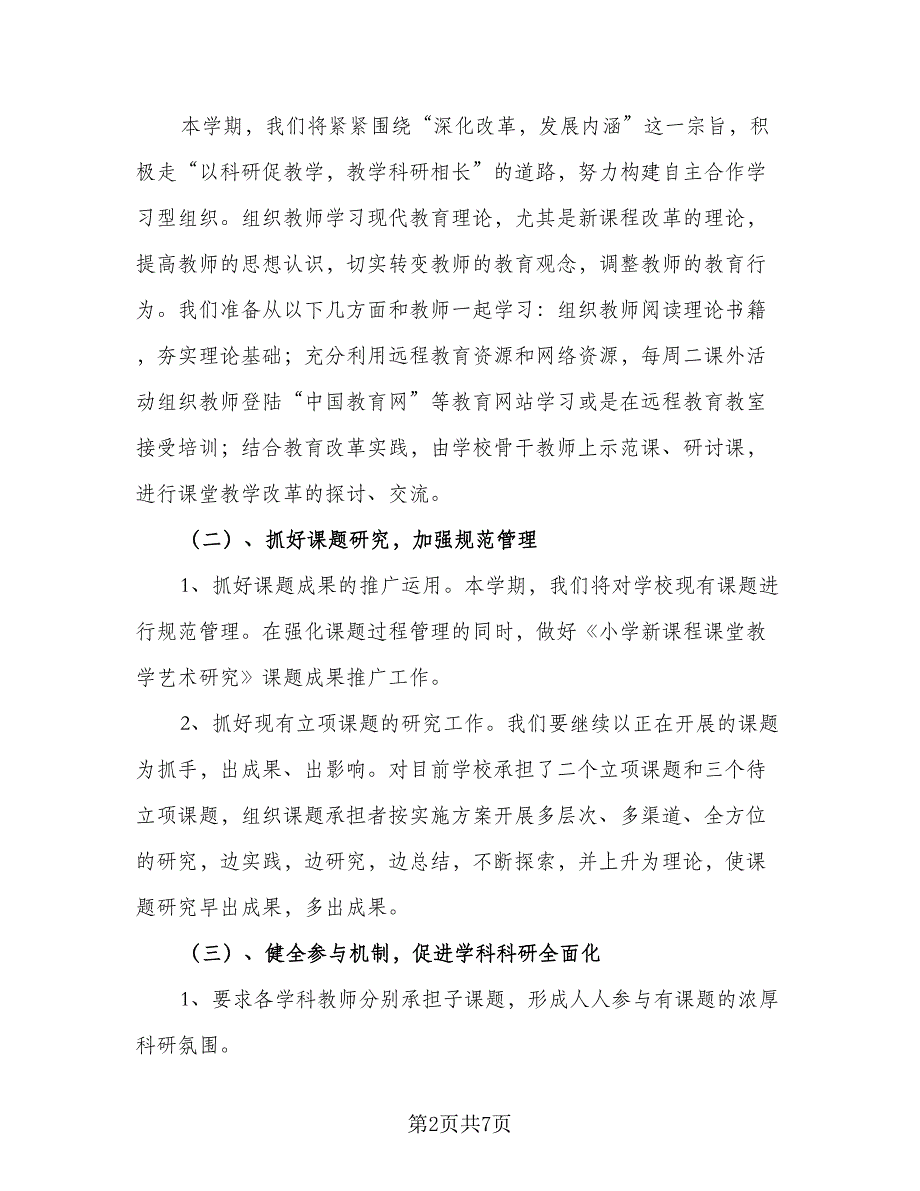 本学期，我们将紧紧围绕“深化改革，发展内涵”这一宗旨，积
极走“以科研促教学，教学科研相长”的道路，努力构建自主合作学
习型组织。组织教师学习现代教育理论，尤其是新课程改革的理论，
提高教师的思想认识，切实转变教师的教育观念，调整教师的教育行
为。我们准备从以下几方面和教师一起学习：组织教师阅读理论书籍
，夯实理论基础；充分利用远程教育资源和网络资源，每周二课外活
动组织教师登陆“中国教育网”等教育网站学习或是在远程教育教室
接受培训；结合教育改革实践，由学校骨干教师上示范课、研讨课，
进行课堂教学改革的探讨、交流。
（二）、抓好课题研究，加强规范管理
1、抓好课题成果的推广运用。本学期，我们将对学校现有课题进
行规范管理。在强化课题过程管理的同时，做好《小学新课程课堂教
学艺术研究》课题成果推广工作。
2、抓好现有立项课题的研究工作。我们要继续以正在开展的课题
为抓手，出成果、出影响。对目前学校承担了二个立项课题和三个待
立项课题，组织课题承担者按实施方案开展多层次、多渠道、全方位
的研究，边实践，边研究，边总结，不断探索，并上升为理论，使课
题研究早出成果，多出成果。
（三）、健全参与机制，促进学科科研全面化
1、要求各学科教师分别承担子课题，形成人人参与有课题的浓厚
科研氛围。
第2页共7页